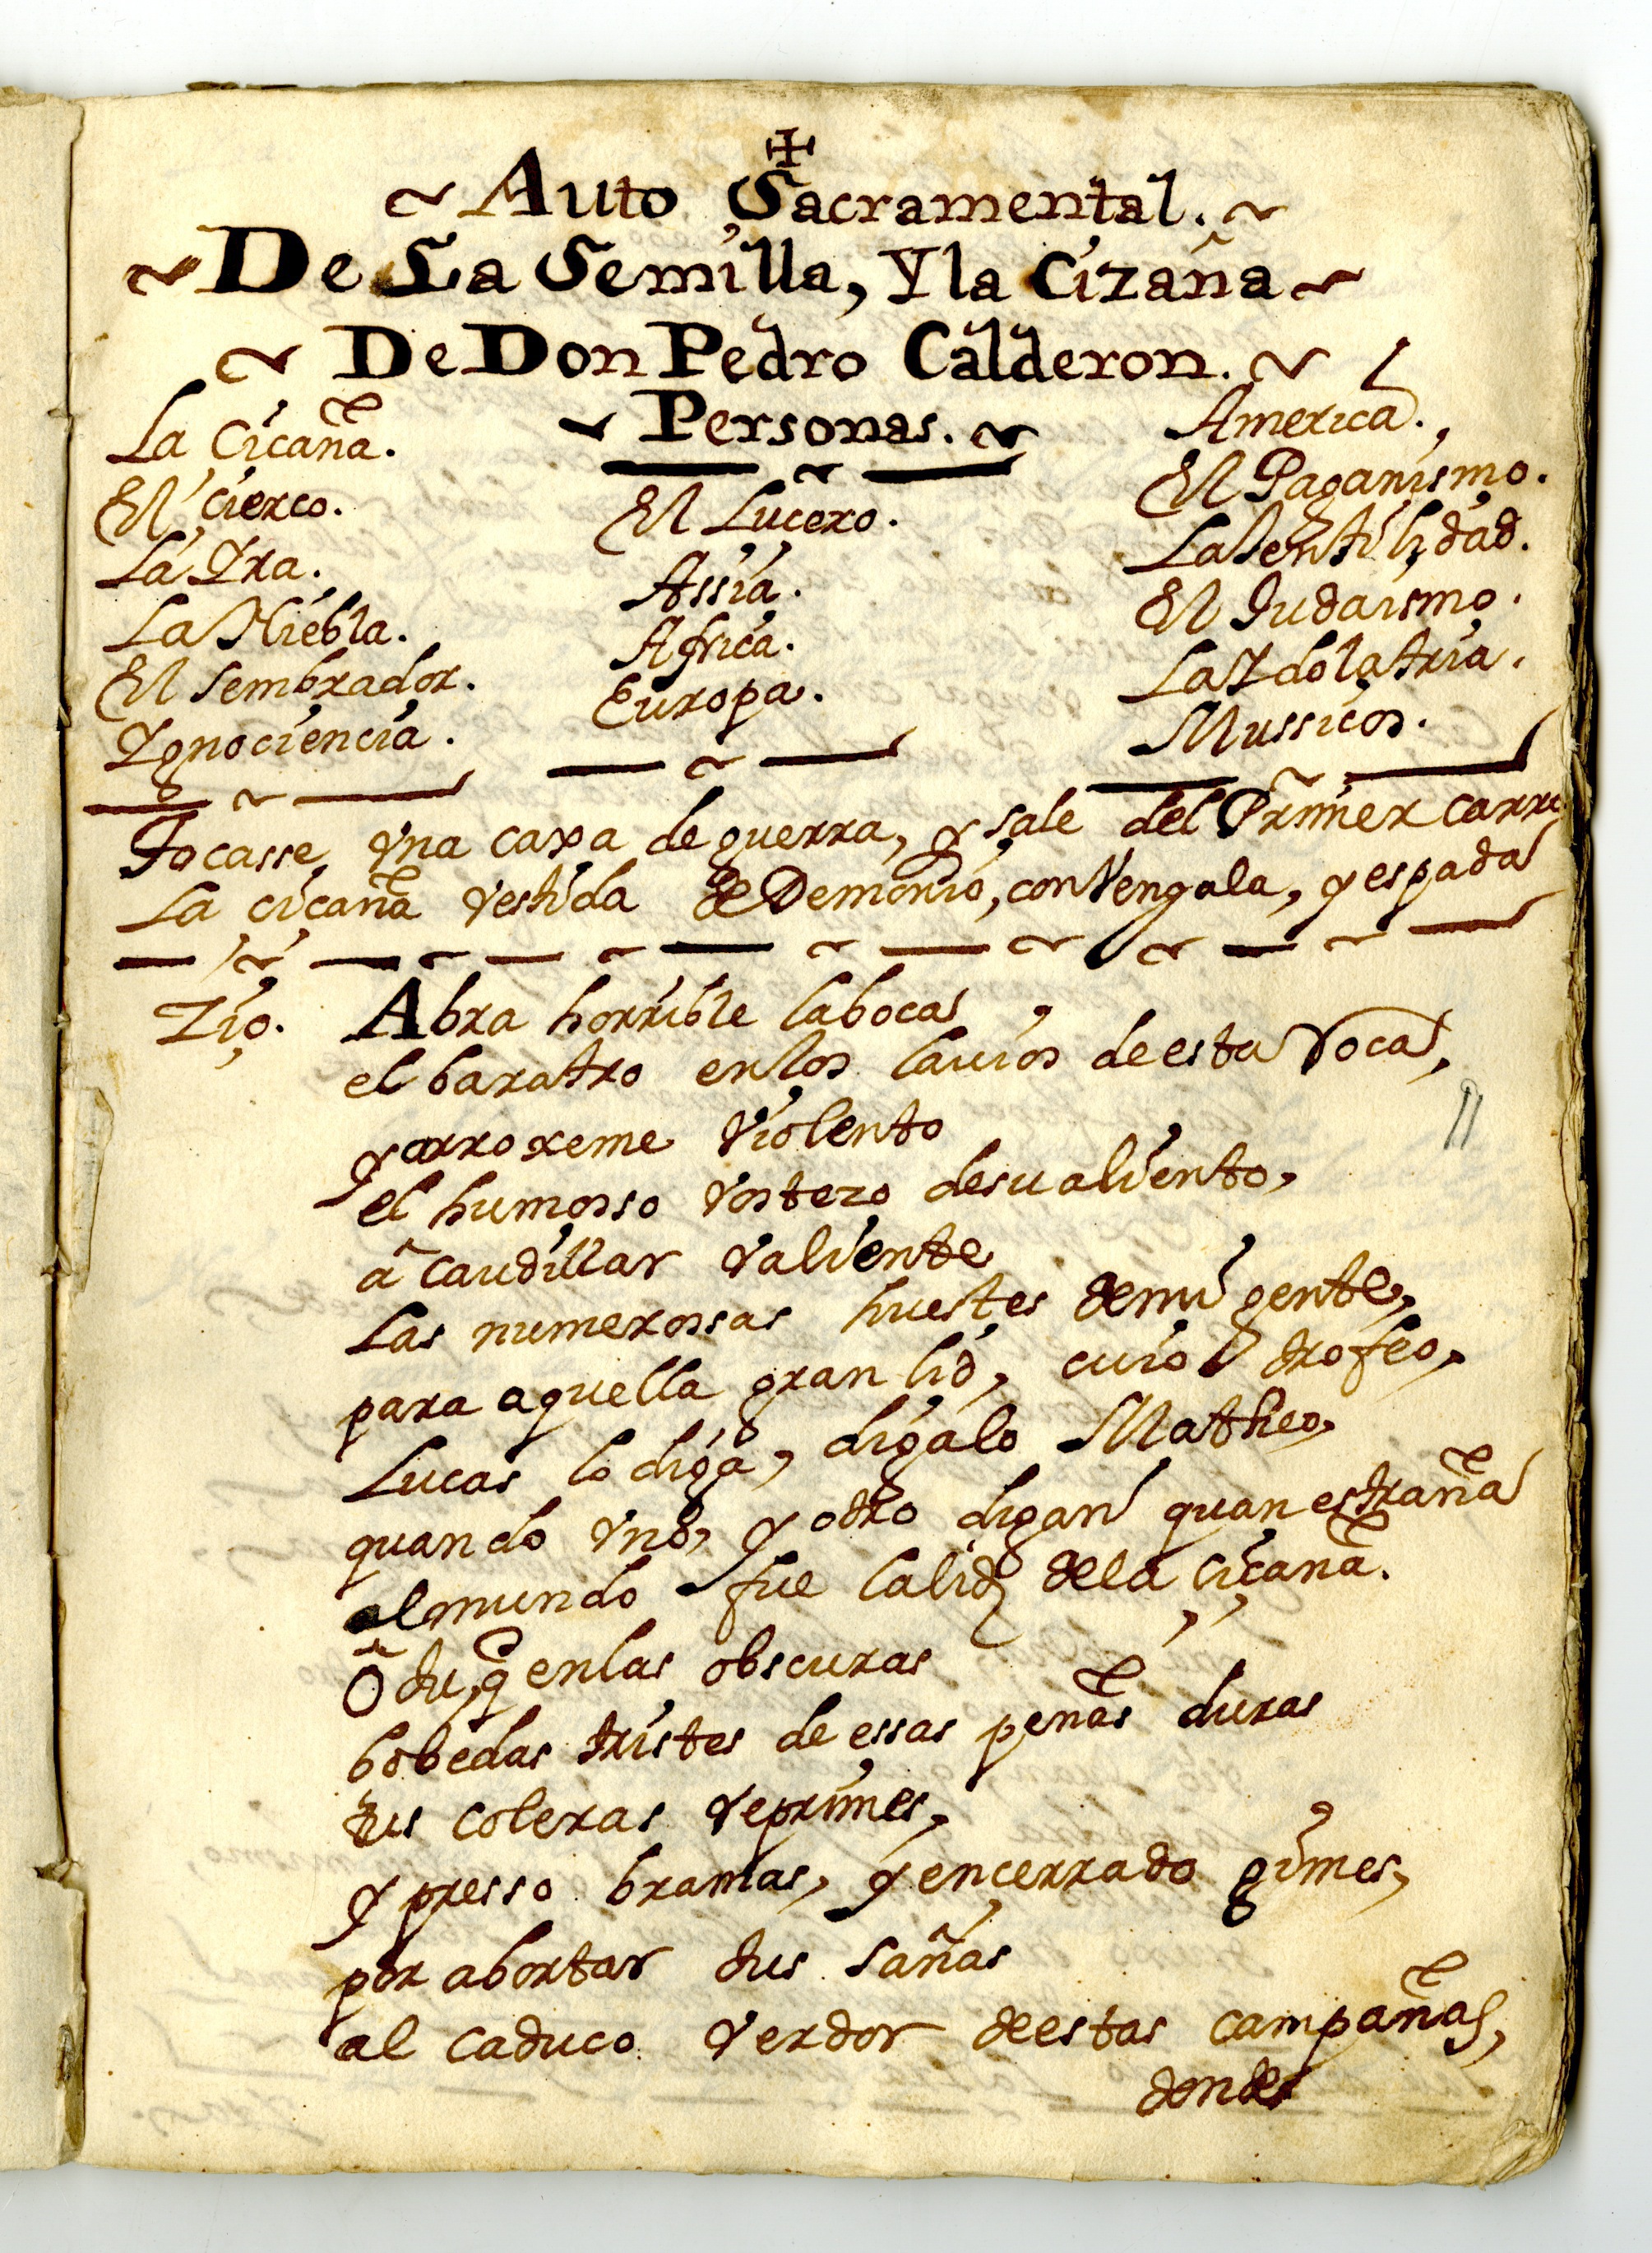 +
~ Auto Sacramental. ~
~ De La Semilla, Y la Cizaña ~
~ De Don Pedro Calderon. ~
~ Personas. ~
La Ciçaña.
El cierço.
La Yra.
La Niebla.
El Sembrador.
Ygnociencia.
El Lucero.
Assia.
Africa.
Europa.
America.
El Paganismo.
La Jentilidad.
El Judaismo.
La Ydolatria.
Mussicos.
Tocasse vna caxa de guerra, y sale del Primer carro
La ciçaña vestida de Demonio, con Vengala, y espada
Ziç. Abra horrible la boca
el baratro en los lauios de esta Roca,
y arroxeme violento
el humosso vostezo de su aliento,
â caudillar valiente
Las numerossas huestes de mi gente,
para aquella gran lid, cuio trofeo,
Lucas lo diga, digalo Matheo,
quando vno, y otro digan quan estraña
al mundo fue la lid de la çiçaña.
ô tu, q̃ en las obscuras
bobedas tristes de essas peñas duras
tus coleras reprimes,
y presso bramas, y ençerrado gimes,
por abortar tus sañas
al caduco verdor de estas campañas,
donde
11